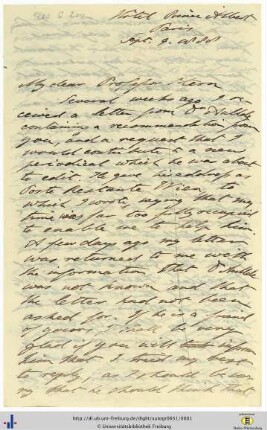 Hotel Prince Albert
Paris
Sept. 9.
My dear Professor Stern
Several weeks ago I re-
ceived a letter from Dr
containing a recommendation from
you, and a request that I
would contribute to a new
periodical which he was about
to edit. He gave his address as
Poste Restante, Wien, to
which I wrote, saying that my
time was far too fully occupied
to enable me to help him.
A few days ago my letter
was returned to me with
the information that Dr
was not known and that
the letter had not been
asked for. If he is a friend
of yours, I shall be very
glad if you will inform
him that I tried my best
to reply, as I should be
that I should
http://dl.ub.uni-freiburg.de/diglit/autogr0951/0001
© Universitätsbibliothek Freiburg